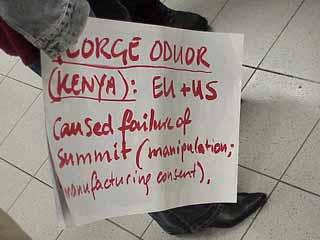 GEORGE ODUOR
(KENYA): EU + US
Caused failure of
summit (manipulation;
manufacturing consent).